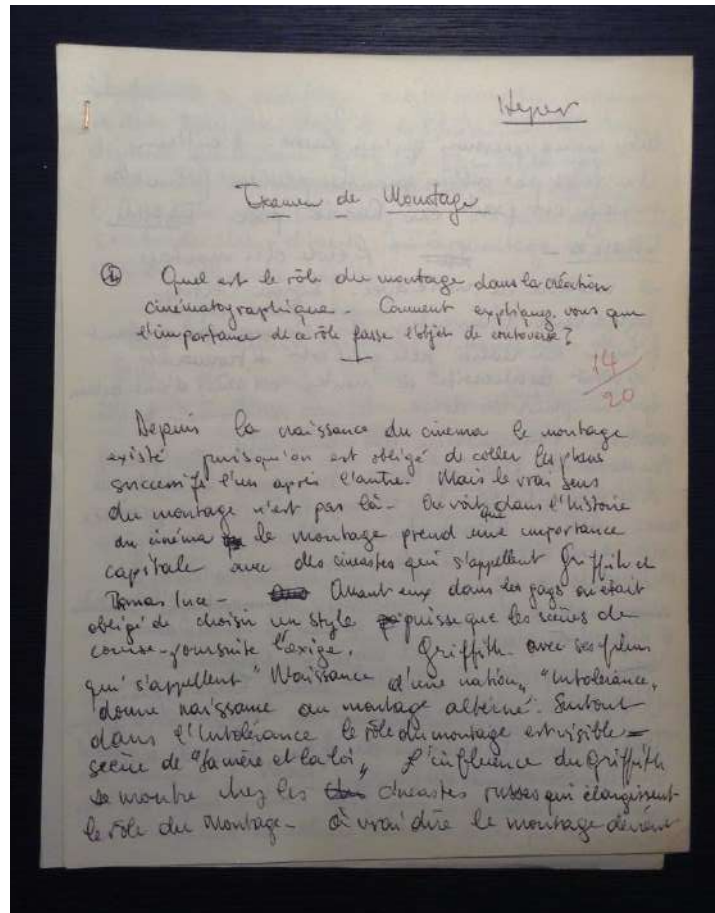 Heper
Examen de Montage
① Quel est le rôle du montage dans la création
cinématographique - Comment expliquez-vous que
l'importance de ce rôle fasse l'objet de controverse?
14/20
Depuis la naissance du cinema le montage
existé puisqu'on est obligé de coller les plans
successifs l'un après l'autre. Mais le vrai sens
du montage n'est pas là - On voit dans l'histoire
du cinéma que le montage prend une importance
capitale avec des cineastes qui s'appellent Griffith et
Tomas Ince - Avant eux dans les gags on était
obligé de choisir un style puisseque les scènes de
course-poursuite l'exige. Griffith avec ses films
qui s'appellent "Naissance d'une nation„ "Intolérance„
donne naissance au montage alterné. Surtout
dans l'Intolérance le rôle du montage est visible =
scène de "La mère et la loi„ L'influence du Griffith
se montre chez les cineastes russes qui élargissent
le rôle du Montage - à vrai dire le montage devient